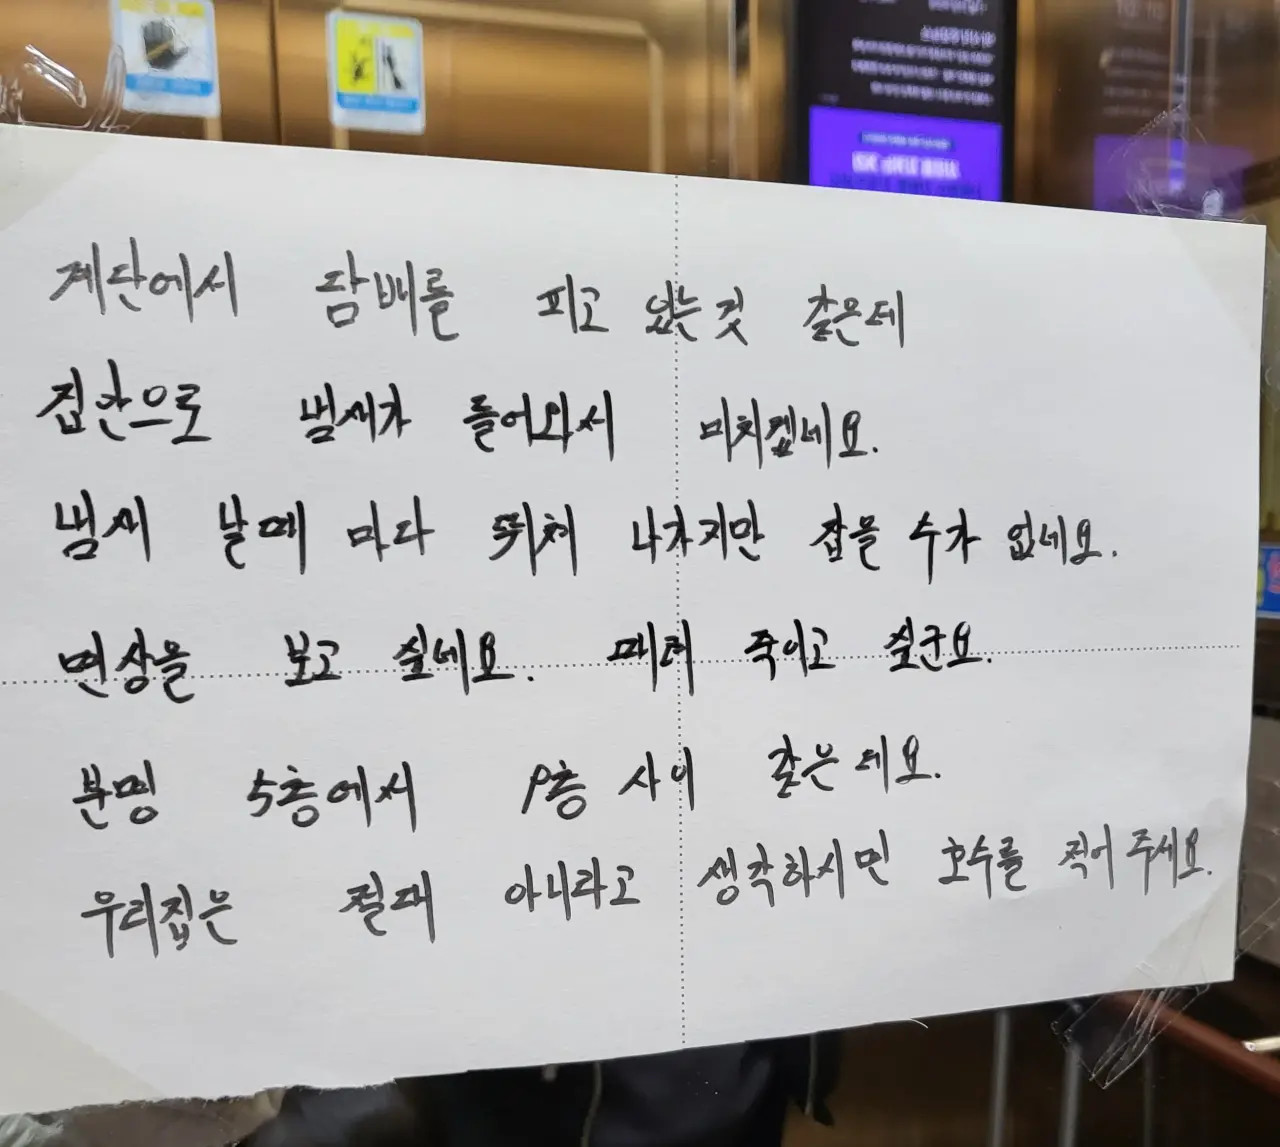 계단에서 담배를 피고 있는것 같은데
집안으로 냄새가 들어와서 미치겠네요.
냄새 날때 마다 뛰쳐 나가지만 잡을 수가 없네요.
면상을 보고 싶네요. 때려 죽이고 싶군요.
분명 5층에서 9층 사이 같은데요.
우리집은 절대 아니라고 생각하시면 호수를 적어 주세요.